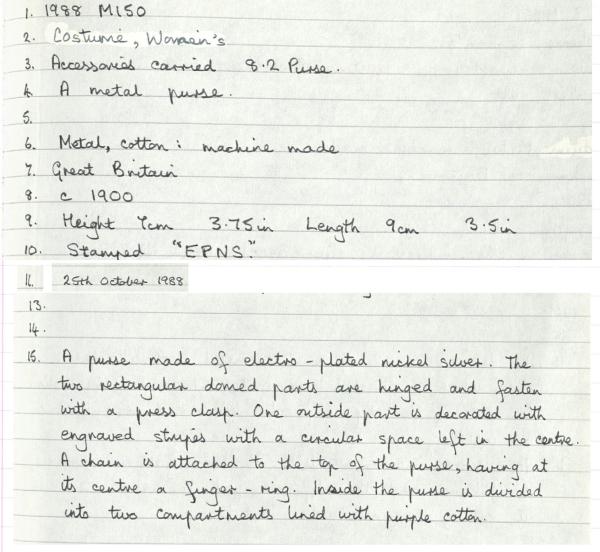 1. 1988 M150
2. Costume, Women's
3. Accessories carried 8.2 Purse.
4. A metal purse.
5.
6. Metal, cotton : machine made
7. Great Britain
8. c 1900
9. Height 7cm 3.75in Length 9cm 3.5in
10. Stamped "EPNS."
11. 25th October 1988
13.
14.
15. A purse made of electro-plated nickel silver. The
two rectangular domed parts are hinged and fasten
with a press clasp. One outside part is decorated with
engraved stripes with a circular space left in the centre.
A chain is attached to the top of the purse, having at
its centre a finger-ring. Inside the purse is divided
into two compartments lined with purple cotton.